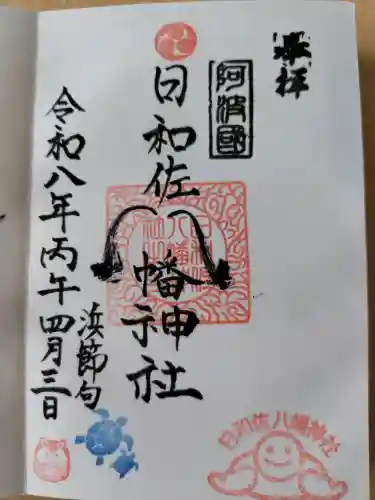 奉拝
阿波國
日和佐八幡神社
浜節句
令和八年丙午四月三日
日和佐八幡神社